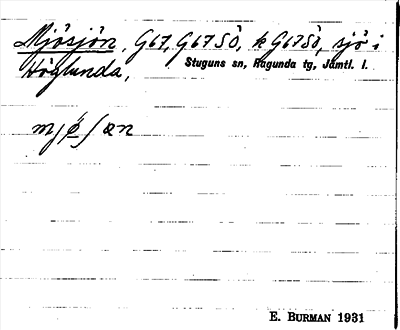 Mjösjön, G67, G67SÖ, k G67SÖ, sjö i
Höglunda, Stuguns sn, Ragunda tg, Jämtl. l.
mjø̀ʃæn
E. BURMAN 1931